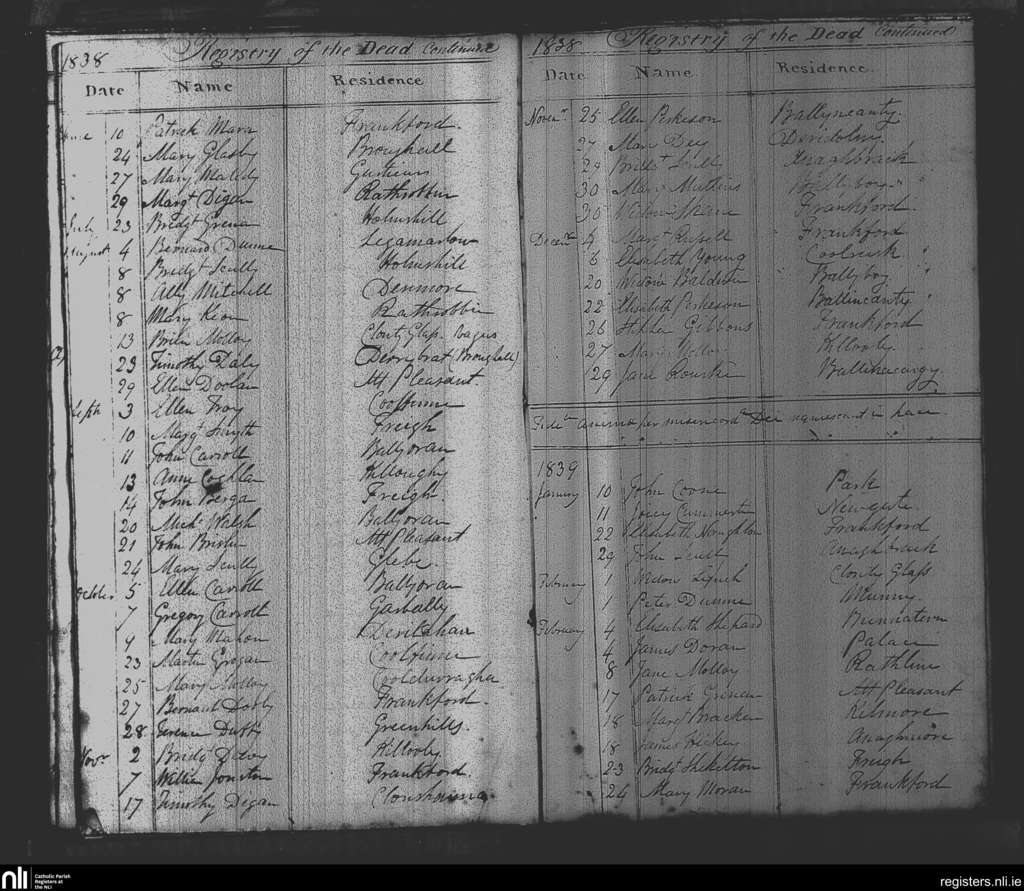 1838 Registry of the Dead Continued
Date Name Residence
June 10 Patrick Mara Frankford
24 Mary Glasby Broughall
27 Mary
29 Margt Digan Rathrobbin
July 23 Bridgt Holmshill
August 4 Bernard Dunne Legamarlow
8 Bridgt Scully Holmshill
8 Ally Mitchell Denmore
8 Mary Keon Rathrobbin
13 Molloy Clonty Glass
23 Timothy Daly Derrybrat (Broughall)
29 Ellen Doolan Mt Pleasant
Septr 3 Ellen Troy Coolfinne
10 Margt Smyth Freigh
11 John Carroll Ballyoran
13 Anne Coghlan Killoughy
14 John Freigh
20 Michl Walsh Ballyoran
21 John Mt Pleasant
24 Mary Scully Glebe
October 5 Ellen Carroll Ballyoran
7 Gregory Carroll Garbally
9 Mary Mahon
23 Martin Grogan Coolfinne
25 Mary Molloy
27 Bernard Frankford
28 Terence Duffy Greenhills
Novr 2 Bridgt Killooly
7 Frankford
17 Timothy Digan
1838 Registry of the Dead Continued
Date Name Residence
Novemr 25 Ellen Perkeson Ballyncanty
27 Mary Dey
29 Bridgt Scully Anaghbrack
30 Mary Mullins Ballyboy
30 Widow Frankford
Decemr 4 Margt Russell Frankford
6 Elisabeth Young Coolrusk
20 Widow Baldwin Ballyboy
22 Elisabeth Perkeson Ballincanty
26 Gibbons Frankford
27 Mary Molloy Killooly
29 Jane Rourke
Fidelm animæ per misericordm Dei requiescant in pace
1839
January 10 John Coone Park
11 Newgate
22 Elisabeth Naughton Frankford
29 John Scully Anaghbrack
February 1 Widow Lynch Clonty Glass
1 Peter Dunne
February 4 Elisabeth Shepard
4 James Doran Palace
8 Jane Molloy Rathline
17 Patrick Mt Pleasant
18 Margt Bracken Kilmore
18 James Hickey Anaghmore
23 Bridgt Skelton Freigh
24 Mary Moran Frankford
nli Catholic Parish
Registers at
the NLI
registers.nli.ie